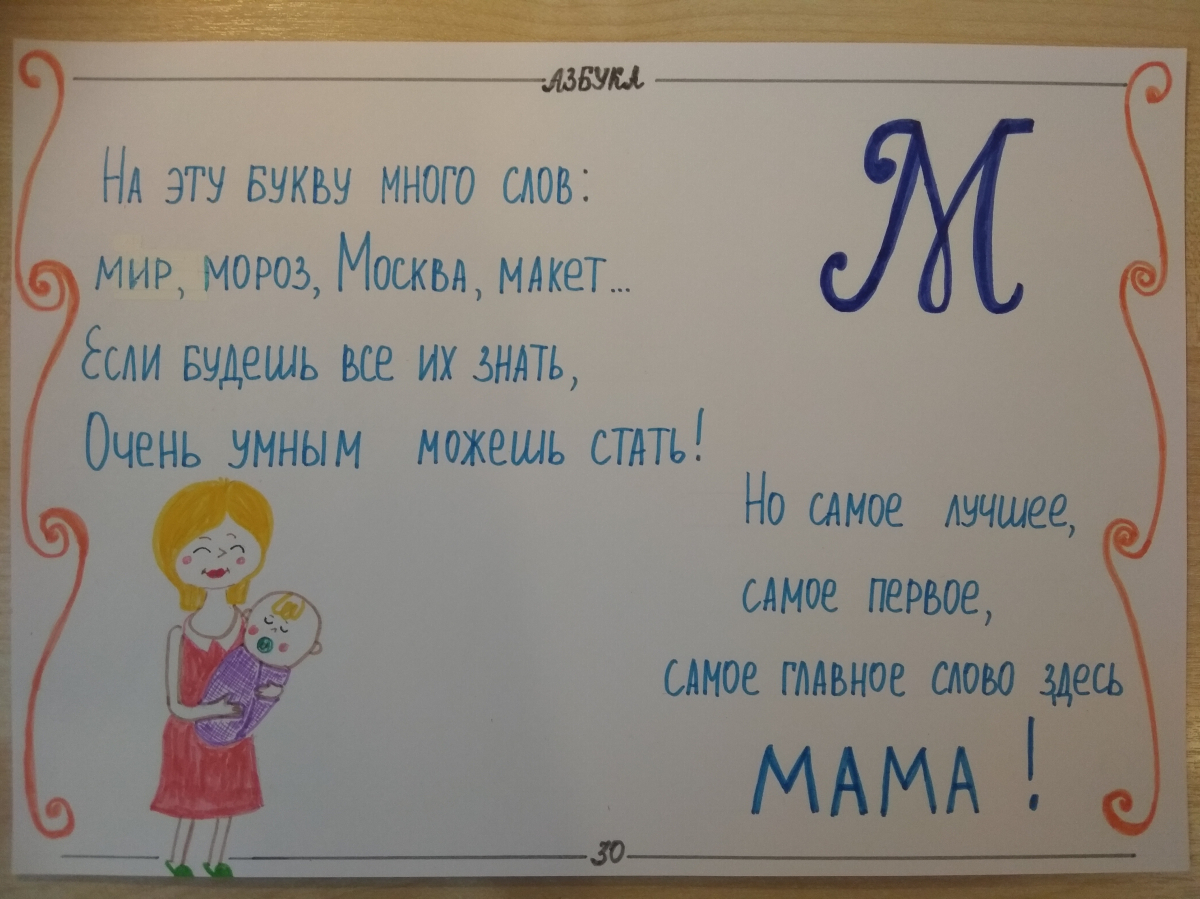 АЗБУКА
М
На эту букву много слов:
мир, мороз, Москва, макет...
Если будешь все их знать,
Очень умным можешь стать!
Но самое лучшее,
самое первое,
самое главное слово здесь
МАМА!
30